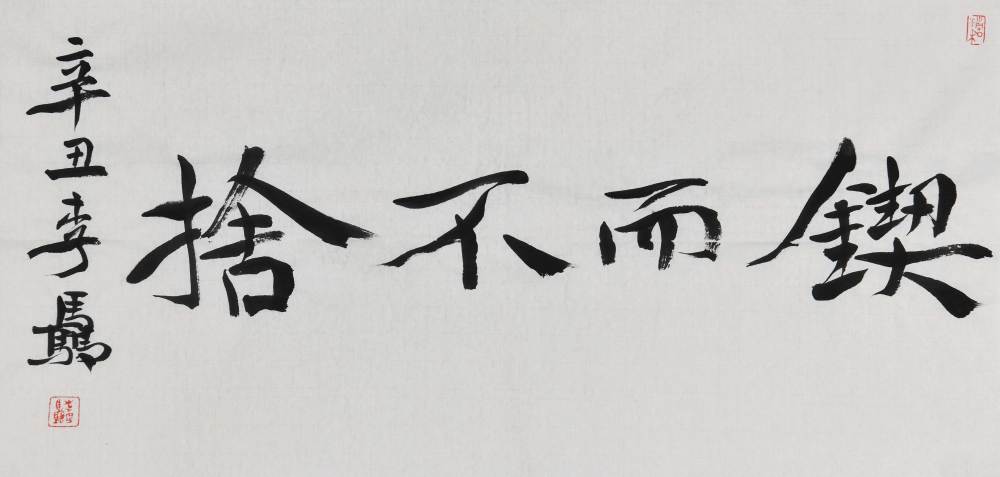 鍥而不捨
辛丑李驫